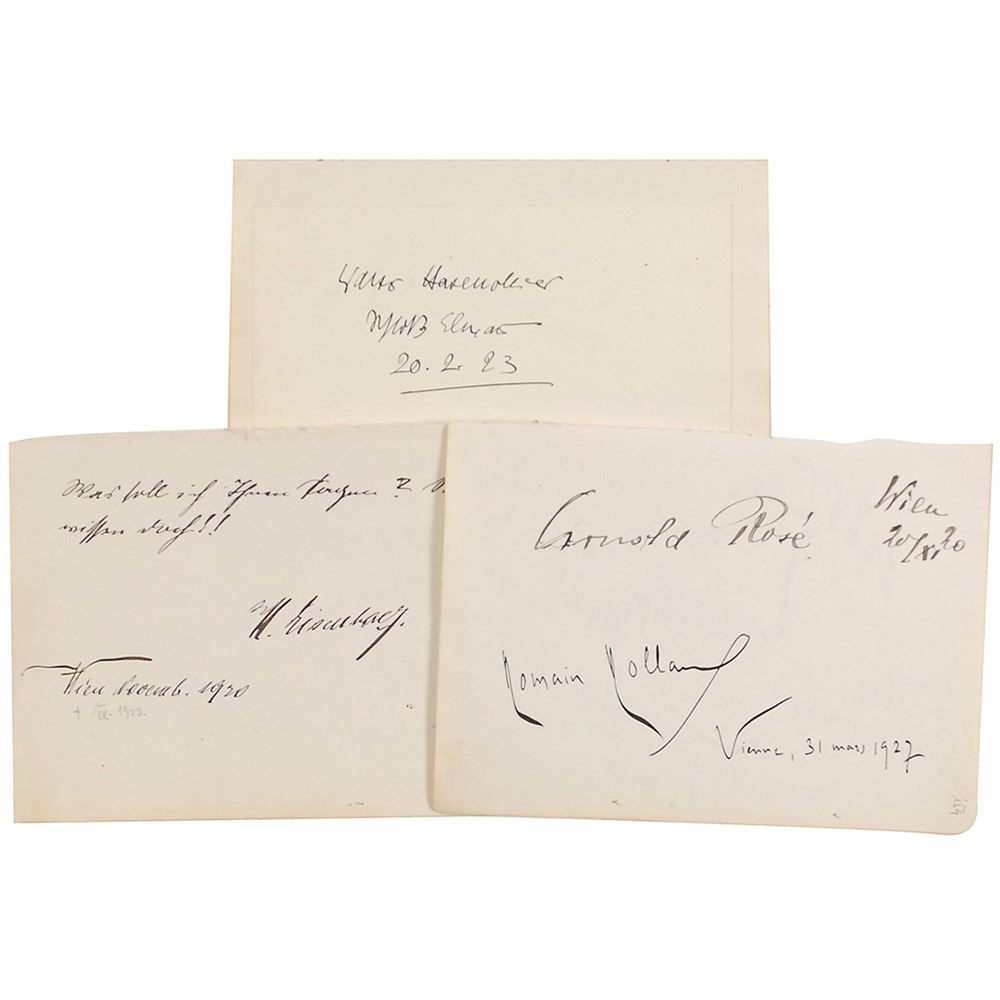 Walter Hasenclever
Schloß Elmau
20. 2. 23
Was soll ich Ihnen sagen? S
wissen doch!!
H. Eisenbach.
Wien Decemb. 1920
† IV. 1923.
Arnold Rosé
Wien
20/XI 20
Romain Rolland
Vienne, 31 mars 1927